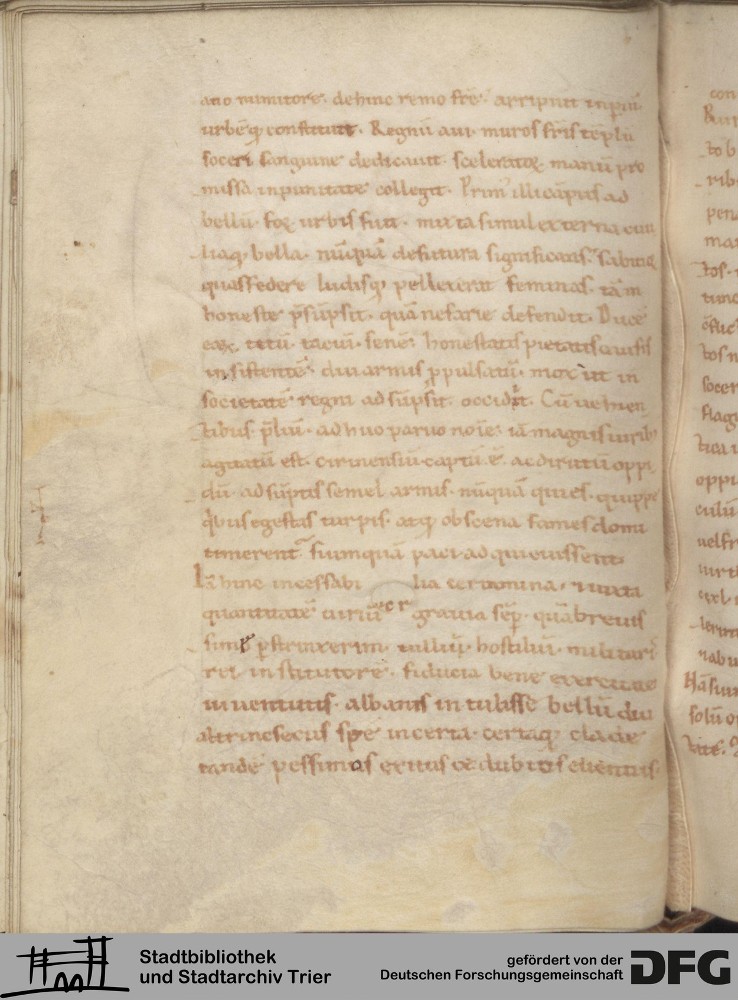 ano numitore. dehinc remo frē. arripuit inpiū.
urbēq; constituit. Regnū aui. muros fr̄is tēplū
soceri sanguine dedicauit. sceleratoꝝ manū pro
missa inpunitate collegit. Primꝰ illi cāpus ad
bellū. foꝝ urbis fuit. mixta simul externa ciui
liaq; bella. nūquā defutura significans. Sabinas
quas federe ludisq; pellexerat feminas. tā in
honeste p̄sūpsit. quā nefarie defendit. Ducē
eaꝝ. titū. taciū. senē honestatis pietatis causis
insistentē. diu armis ꝓpulsatū. mox ut in
societatē regni adsūpsit. occidit. Cū uehien
tibus p̄liū. adhuc paruo noīe. iā magnis uirib;
agitatū est. cirinensiū captū ē. ac dirutū oppi
dū. adsūptis semel armis. nūquā quies. quippe
q̄bus egestas turpis. atq; obscena fames domi
timerent᷑ si umquā paci adquieuissent.
Iā hinc incessabi lia certamina. & iuxta
quantitatē uiriū gͬrauia sēp. quā breuis
sime pstrinxerim. tulliū. hostiliū. militaris
rei institutorē. fiducia bene exercitae
iuuentutis. albanis intulisse bellū diu
altrinsecus spē incerta. certaq; clade
tandē pessimos exitus & dubios euentus.
con
tos
ribꝰ
pen
mar
tos.
tunc
tos n
socer
flag
oppi
culū
uel fr
uirt
nabu
Hā sum
solū
Stadtbibliothek
und Stadtarchiv Trier
gefördert von der
Deutschen Forschungsgemeinschaft
DFG